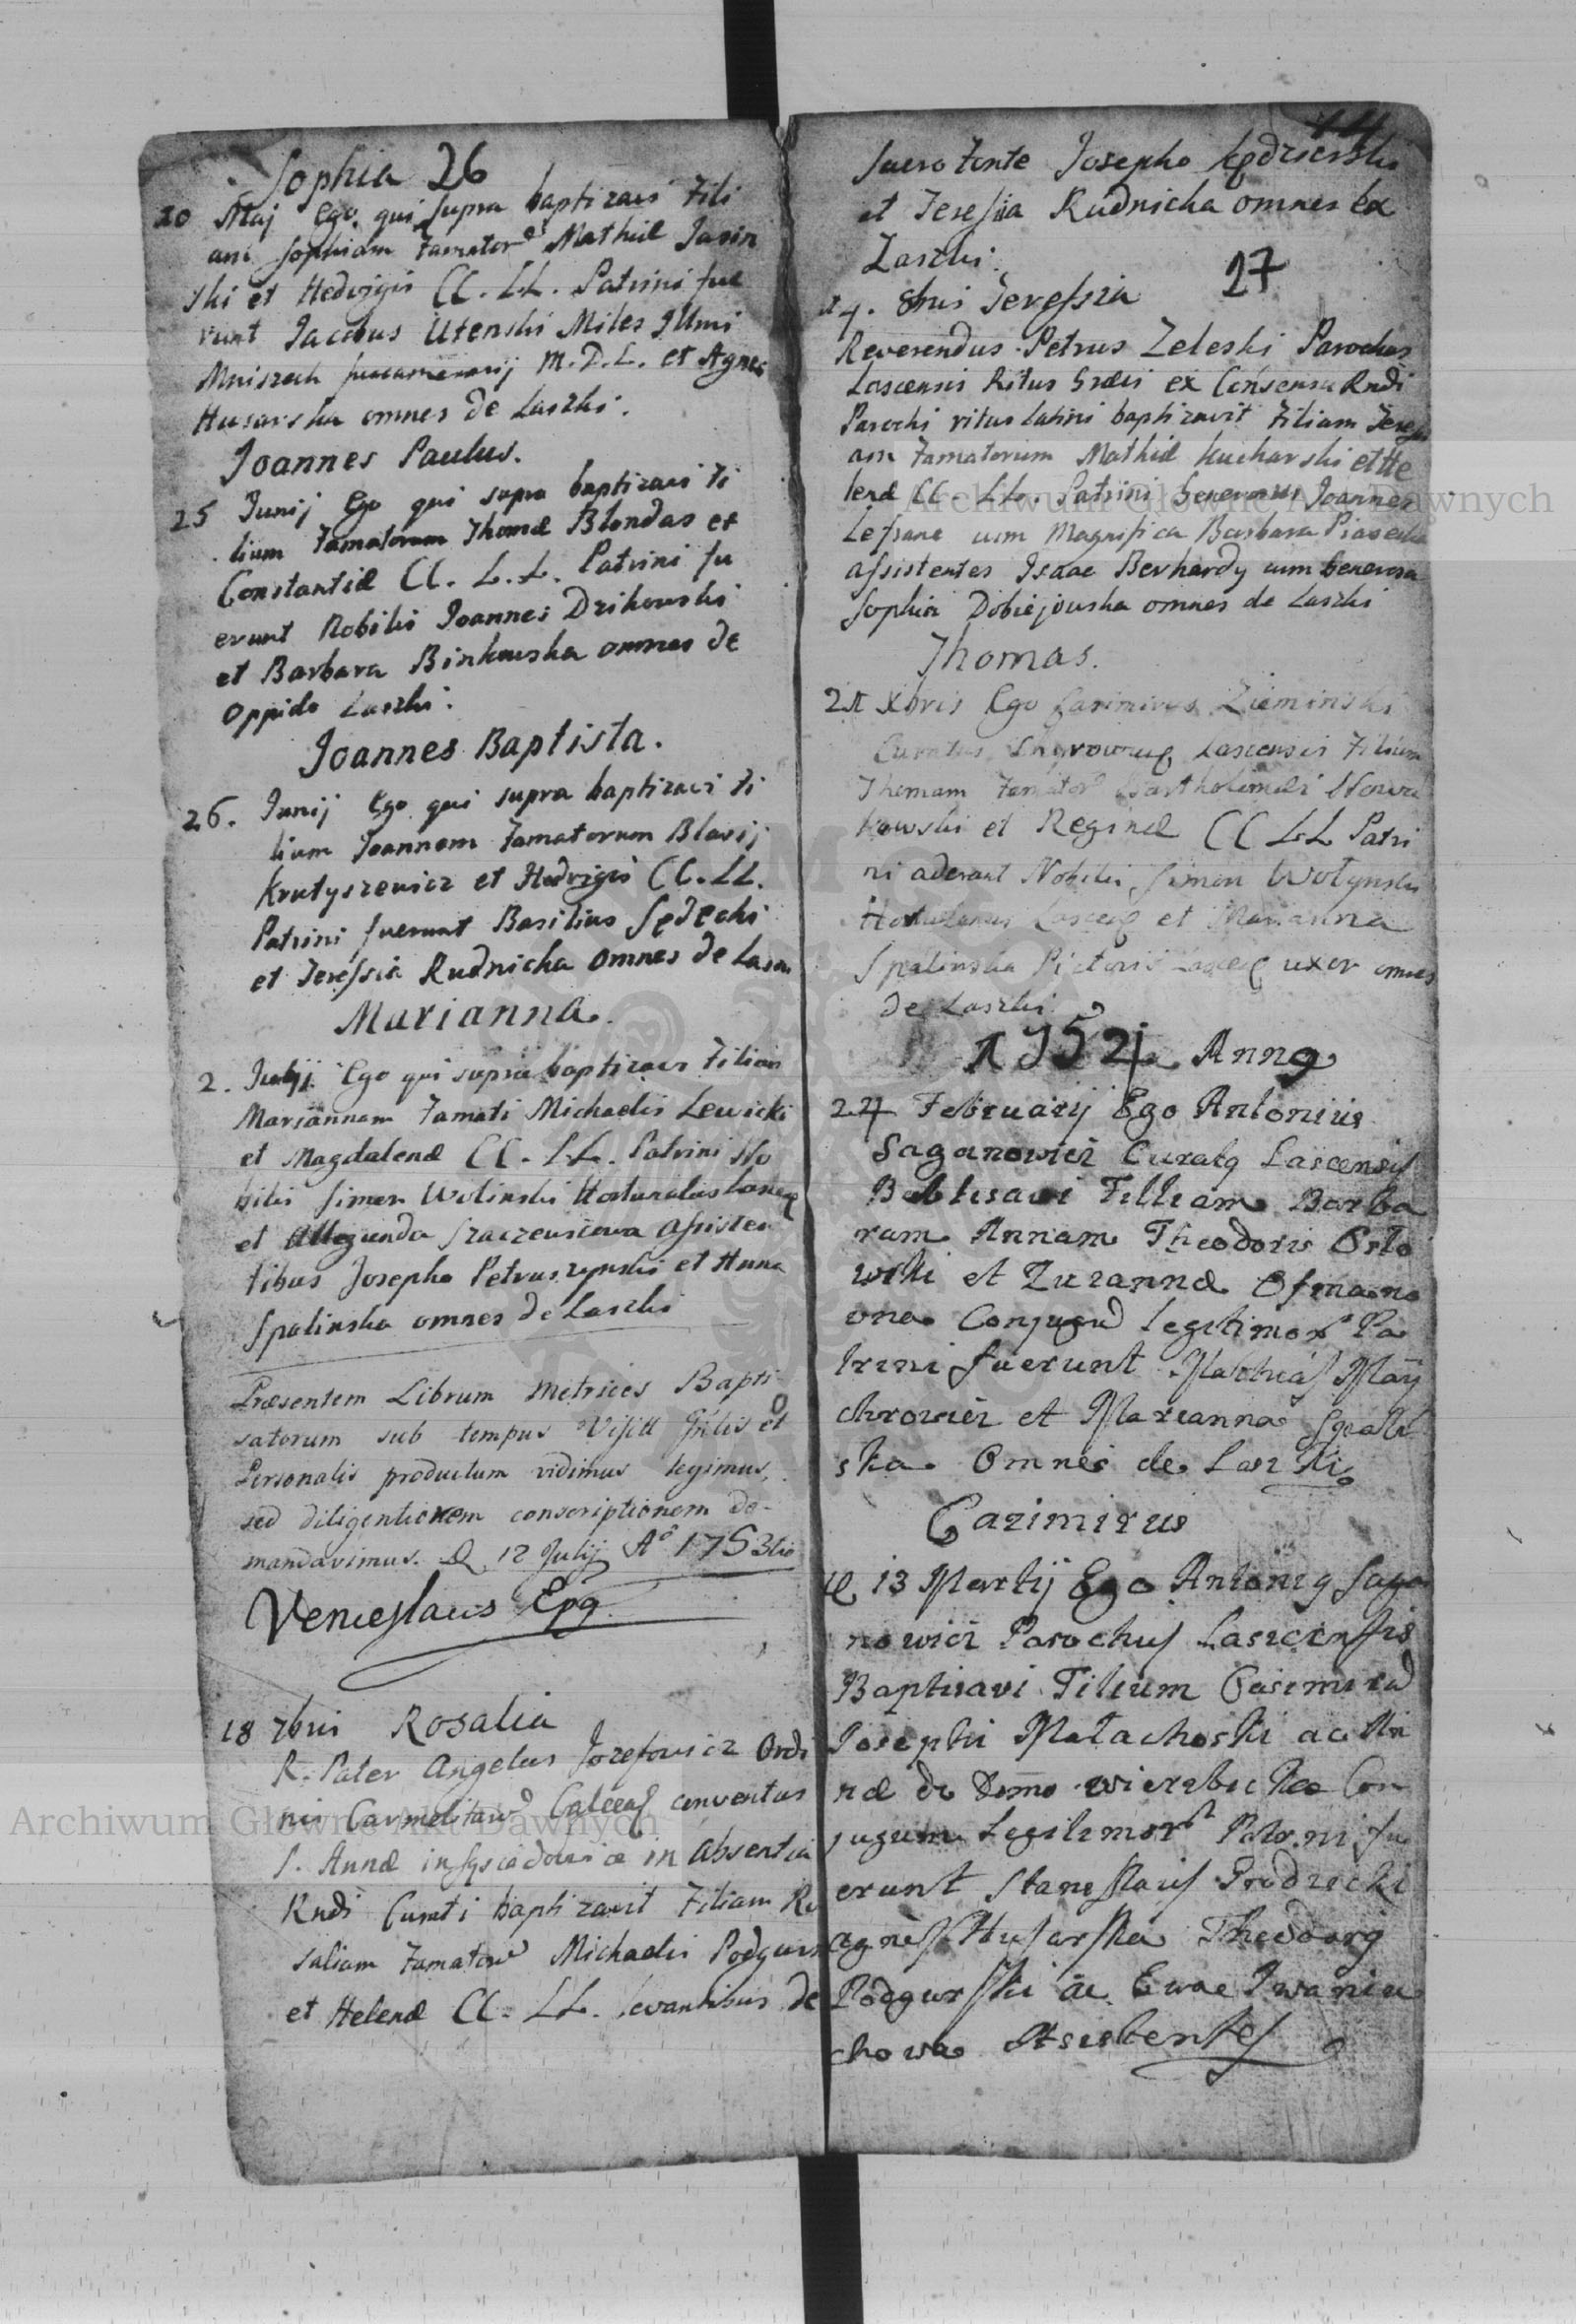 Sophia 26
20 Maj Ego qui supra baptizavi Fili
am Sophiam Famator Mathiæ Jasin
ski et Hedvigis CC. LL. Patrini fue
runt Jacobus Utenski Miles Illmi
Mniszech M.D.L. et Agnes
Husarska omnes de Laszki.
Joannes Paulus.
25 Junij Ego qui supra baptizavi Fi
lium Famatorum Thomæ Blondas et
Constantiæ CC. L.L. Patrini fu
erunt Nobilis Joannes Dzikowski
et Barbara Binkowska omnes de
Oppido Laszki.
Joannes Baptista.
26. Junij Ego qui supra baptizavi Fi
lium Joannem Famatorum Blasij
Krutyszewicz et Hedvigis CC. LL.
Patrini fuerunt Basilius Sędecki
et Teressia Rudnicka omnes de
Marianna.
2. Julij Ego qui supra baptizavi Filiam
Mariannam Famati Michaelis Lewicki
et Magdalenæ CC. LL. Patrini No
bilis Simon Wolinski
et
tibus Josepho et Anna
Spalinska omnes de Laszki
Præsentem Librum Metrices Bapti
satorum sub tempus Visitt Gnlis et
Personalis productum vidimus legimus,
sed diligentiorem conscriptionem de-
mandavimus. D 12 Julij Ao 1753tio
Venceslaus Epg
18 7bris Rosalia
R. Pater Angelus Jozefowicz Ordi
nis Carmelitar Calceat conventus
S. Annæ in absentia
Rndi Curati baptizavit Filiam Ro
saliam Famator Michaelis Podgurs
et Helenæ CC. LL. levantibus de
14
sacro Fonte Josepho Kędzierski
et Teressia Rudnicka omnes ex
Laszki.
27
14. 8bris Teressia
Reverendus Petrus Zeleski Parochus
Lascensis Ritus Græci ex Consensu Rndi
Parochi ritus latini baptizavit Filiam Teressi
am Famatorum Mathiæ Kucharski et He
lenæ CC. LL. Patrini Generosus Joannes
Lefrane cum Magnifica Barbara Piasecka
assistentes Isaac Berhardy cum Generosa
Sophia Dobiejowska omnes de Laszki
Thomas.
21 Xbris Ego Casimirus Zieminski
Curatus Lascensis Filium
Thomam Famator Bartholomæi Nowa
kowski et Reginæ CC LL Patri
ni aderant Nobilis Simon Wołynski
Hortulanus et Marianna
Spalinska Pictoris uxor omnes
de Laszki.
1754 Anng
24 Februarij Ego Antonius
Saganowicz Curatg Lascensis
Babtisavi Filliam Barba
ram Annam Theodoris Osto
wski et Zuzannæ Ofmano
ona Conjugu legitimor Pa
trini fuerunt Mathias May
chrowicz et Marianna Spali
ska Omnes de Laszki
Cazimirus
D 13 Martij Ego Antonig Saga
nowicz Parochus Lasczensis
Baptisavi Filium Casimiru
Josephi Małachoski ac An
næ de Domo wierzbicka Con
jugum Legitimor Patrini fu
erunt Stanislaus Prodzicki
agnes Husarska Theodorg
Podgurski ac Ewae Iwanicu
chowa Assisbentes
Archiwum Główne Akt Dawnych
Archiwum Główne Akt Dawnych